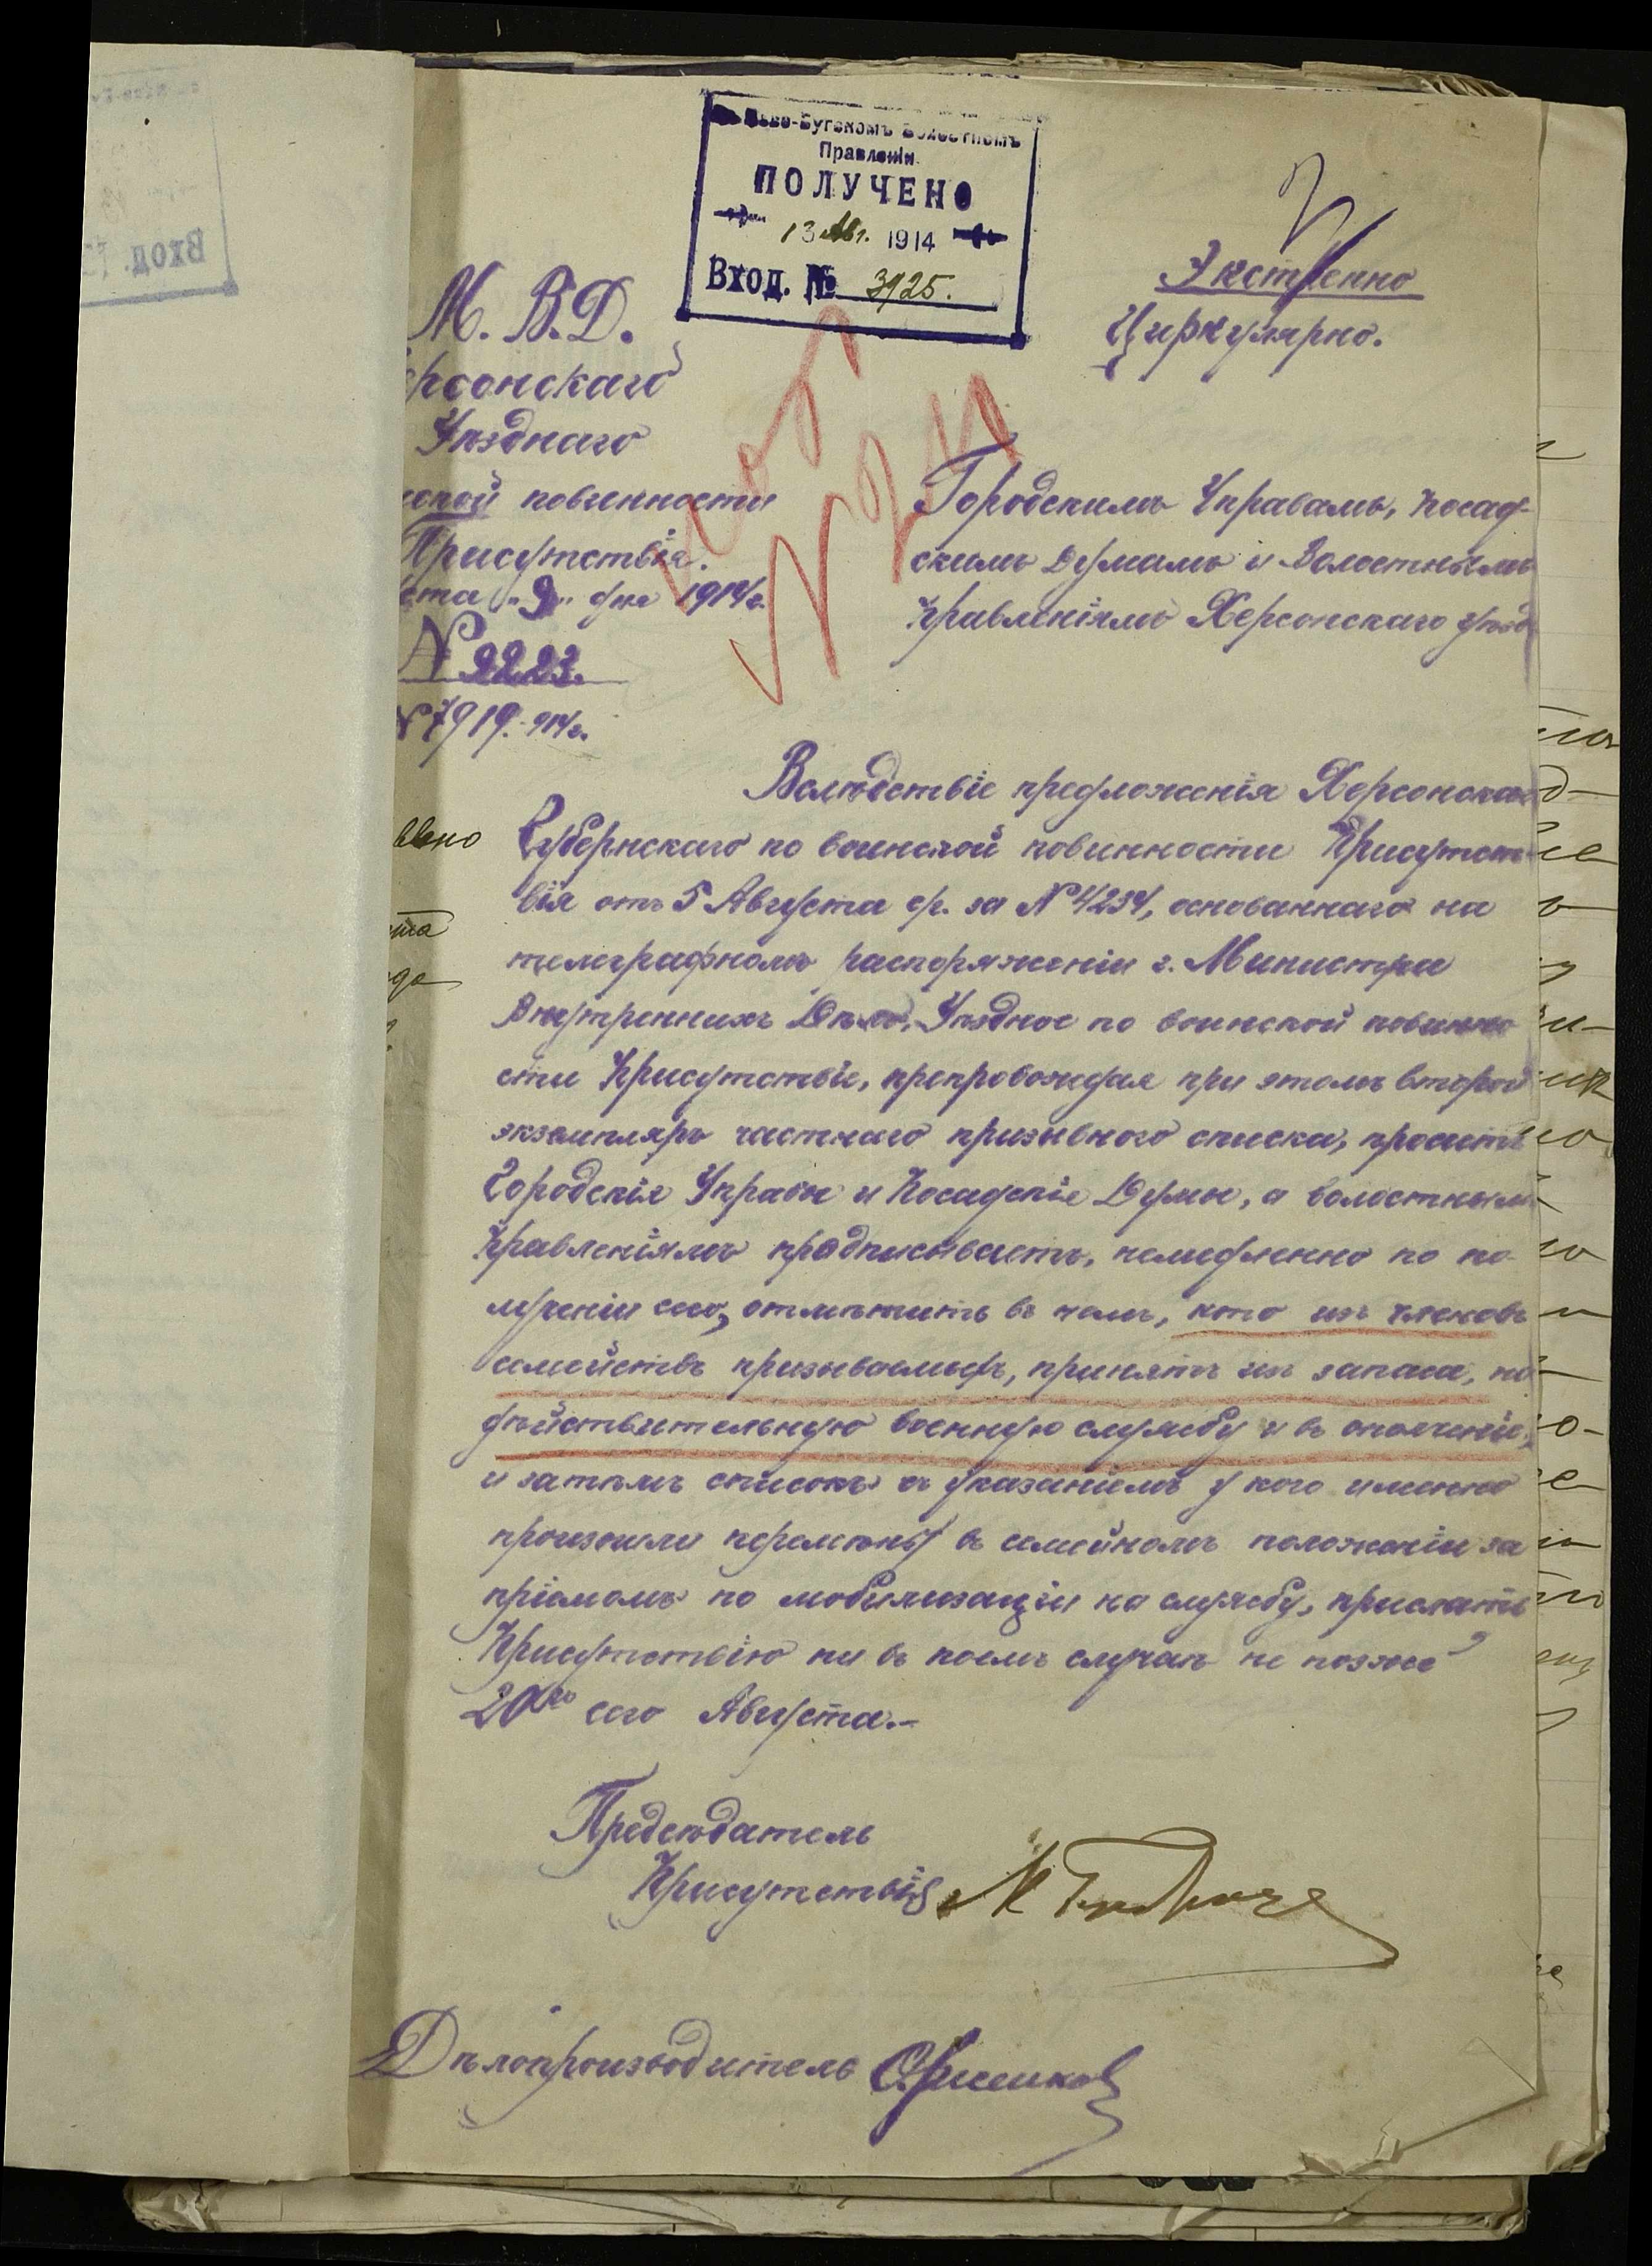 Правленіи.
ПОЛУЧЕНО
13 Авг. 1914
Вход. № 3925.
Экстренно
Циркулярно.
М. В. Д.
рсонскаго
Уѣзднаго
повинности
Присутствія.
ста „9" дня 1914 г.
№ 2223.
№ 7919. 914 г.
Городскимъ Управамъ, Посад-
скимъ Думамъ и Волостнымъ
Правленіямъ Херсонскаго уѣзд
Вслѣдствіе предложенія Херсонскаго
Губернскаго по воинской повинности Присутст-
вія отъ 5 Августа с/г. за № 4234, основаннаго на
телеграфномъ распоряженіи г. Министра
Внутреннихъ Дѣлъ, Уѣздное по воинской повинно
сти Присутствіе, препровождая при этомъ второй
экземпляръ частнаго призывного списка, проситъ
Городскія Управы и Посадскія Думы, а волостнымъ
Правленіямъ предписываетъ, немедленно по по-
лученіи сего, отмѣтить въ немъ, кто изъ членовъ
семействъ призываемыхъ, принятъ изъ запаса, на
дѣйствительную военную службу и въ ополченіе,
и затѣмъ списокъ съ указаніемъ у кого именно
произошли перемѣны въ семейномъ положеніи за
пріемомъ по мобилизаціи на службу, прислать
Присутствію ни въ коемъ случаѣ не позже
20го сего Августа.-
Предсѣдатель
Присутствія
Дѣлопроизводитель
Вход.